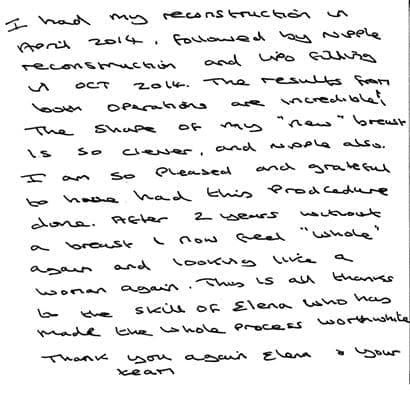 I had my reconstruction in
April 2014, followed by nipple
reconstruction and lipo filling
in OCT 2014. The results from
both operations are incredible!
The shape of my "new" breast
is so clever, and nipple also.
I am so pleased and grateful
to have had this prodcedure
done. After 2 years without
a breast I now feel "whole"
again and looking like a
woman again. This is all thanks
to the skill of Elena who has
made the whole process worthwhile
Thank you again Elena & your
team